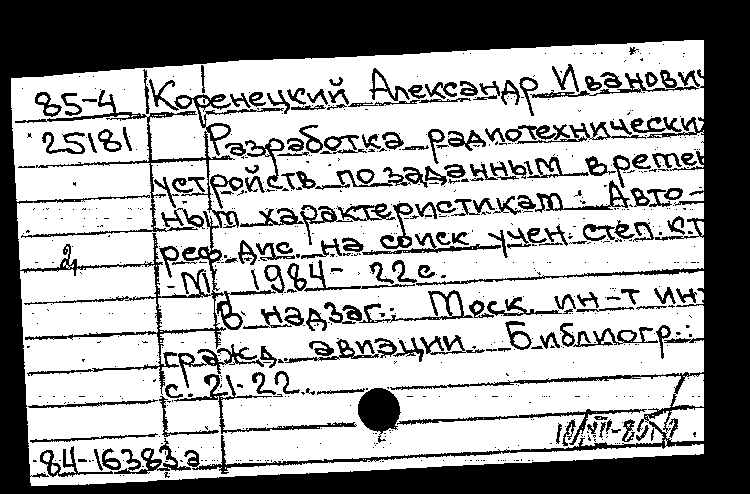 85-4 Коренецкий Александр Иванович
25181 Разработка радиотехнических
устройств по заданным времен
ным характеристикам : Авто-
реф. дис на соиск. учен. степ. к.т
- М., 1984- 22 с.
В надзаг.: Моск. ин-т инж
гражд. авиации. Библиогр.:
с. 21-22.
84-16383а